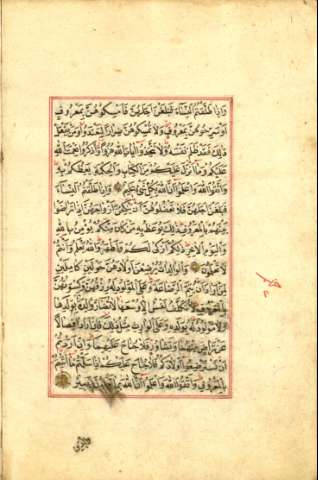 وَاِذَا طَلَّقْتُمُ النِّسَاءَ فَبَلَغْنَ اَجَلَهُنَّ فَاَمْسِكُوهُنَّ بِمَعْرُوفٍ
اَوْ سَرِّحُوهُنَّ بِمَعْرُوفٍ وَلَا تُمْسِكُوهُنَّ ضِرَارًا لِتَعْتَدُوا وَمَنْ يَفْعَلْ
ذٰلِكَ فَقَدْ ظَلَمَ نَفْسَهُ وَلَا تَتَّخِذُوا اٰيَاتِ اللّٰهِ هُزُوًا وَاذْكُرُوا نِعْمَتَ اللّٰهِ
عَلَيْكُمْ وَمَا اَنْزَلَ عَلَيْكُمْ مِنَ الْكِتَابِ وَالْحِكْمَةِ يَعِظُكُمْ بِهِ
وَاتَّقُوا اللّٰهَ وَاعْلَمُوا اَنَّ اللّٰهَ بِكُلِّ شَيْءٍ عَلِيمٌ وَاِذَا طَلَّقْتُمُ النِّسَاءَ
فَبَلَغْنَ اَجَلَهُنَّ فَلَا تَعْضُلُوهُنَّ اَنْ يَنْكِحْنَ اَزْوَاجَهُنَّ اِذَا تَرَاضَوْا
بَيْنَهُمْ بِالْمَعْرُوفِ ذٰلِكَ يُوعَظُ بِهِ مَنْ كَانَ مِنْكُمْ يُؤْمِنُ بِاللّٰهِ
وَالْيَوْمِ الْاٰخِرِ ذٰلِكُمْ اَزْكٰى لَكُمْ وَاَطْهَرُ وَاللّٰهُ يَعْلَمُ وَاَنْتُمْ
لَا تَعْلَمُونَ وَالْوَالِدَاتُ يُرْضِعْنَ اَوْلَادَهُنَّ حَوْلَيْنِ كَامِلَيْنِ
لِمَنْ اَرَادَ اَنْ يُتِمَّ الرَّضَاعَةَ وَعَلَى الْمَوْلُودِ لَهُ رِزْقُهُنَّ وَكِسْوَتُهُنَّ
بِالْمَعْرُوفِ لَا تُكَلَّفُ نَفْسٌ اِلَّا وُسْعَهَا لَا تُضَارَّ وَالِدَةٌ بِوَلَدِهَا
وَلَا مَوْلُودٌ لَهُ بِوَلَدِهِ وَعَلَى الْوَارِثِ مِثْلُ ذٰلِكَ فَاِنْ اَرَادَا فِصَالًا
عَنْ تَرَاضٍ مِنْهُمَا وَتَشَاوُرٍ فَلَا جُنَاحَ عَلَيْهِمَا وَاِنْ اَرَدْتُمْ
اَنْ تَسْتَرْضِعُوا اَوْلَادَكُمْ فَلَا جُنَاحَ عَلَيْكُمْ اِذَا سَلَّمْتُمْ مَا اٰتَيْتُمْ
بِالْمَعْرُوفِ وَاتَّقُوا اللّٰهَ وَاعْلَمُوا اَنَّ اللّٰهَ بِمَا تَعْمَلُونَ بَصِيرٌ